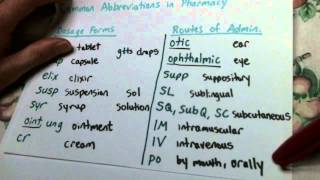 Common Abbreviations in Pharmacy
Dosage Forms
tablet gtts drops
capsule
elix elixir
susp suspension sol
syr syrup solution
oint ung ointment
cr cream
Routes of Admin.
otic ear
ophthalmic eye
supp suppository
SL sublingual
SQ, SubQ, SC subcutaneous
IM intramuscular
IV intravenous
PO by mouth, orally